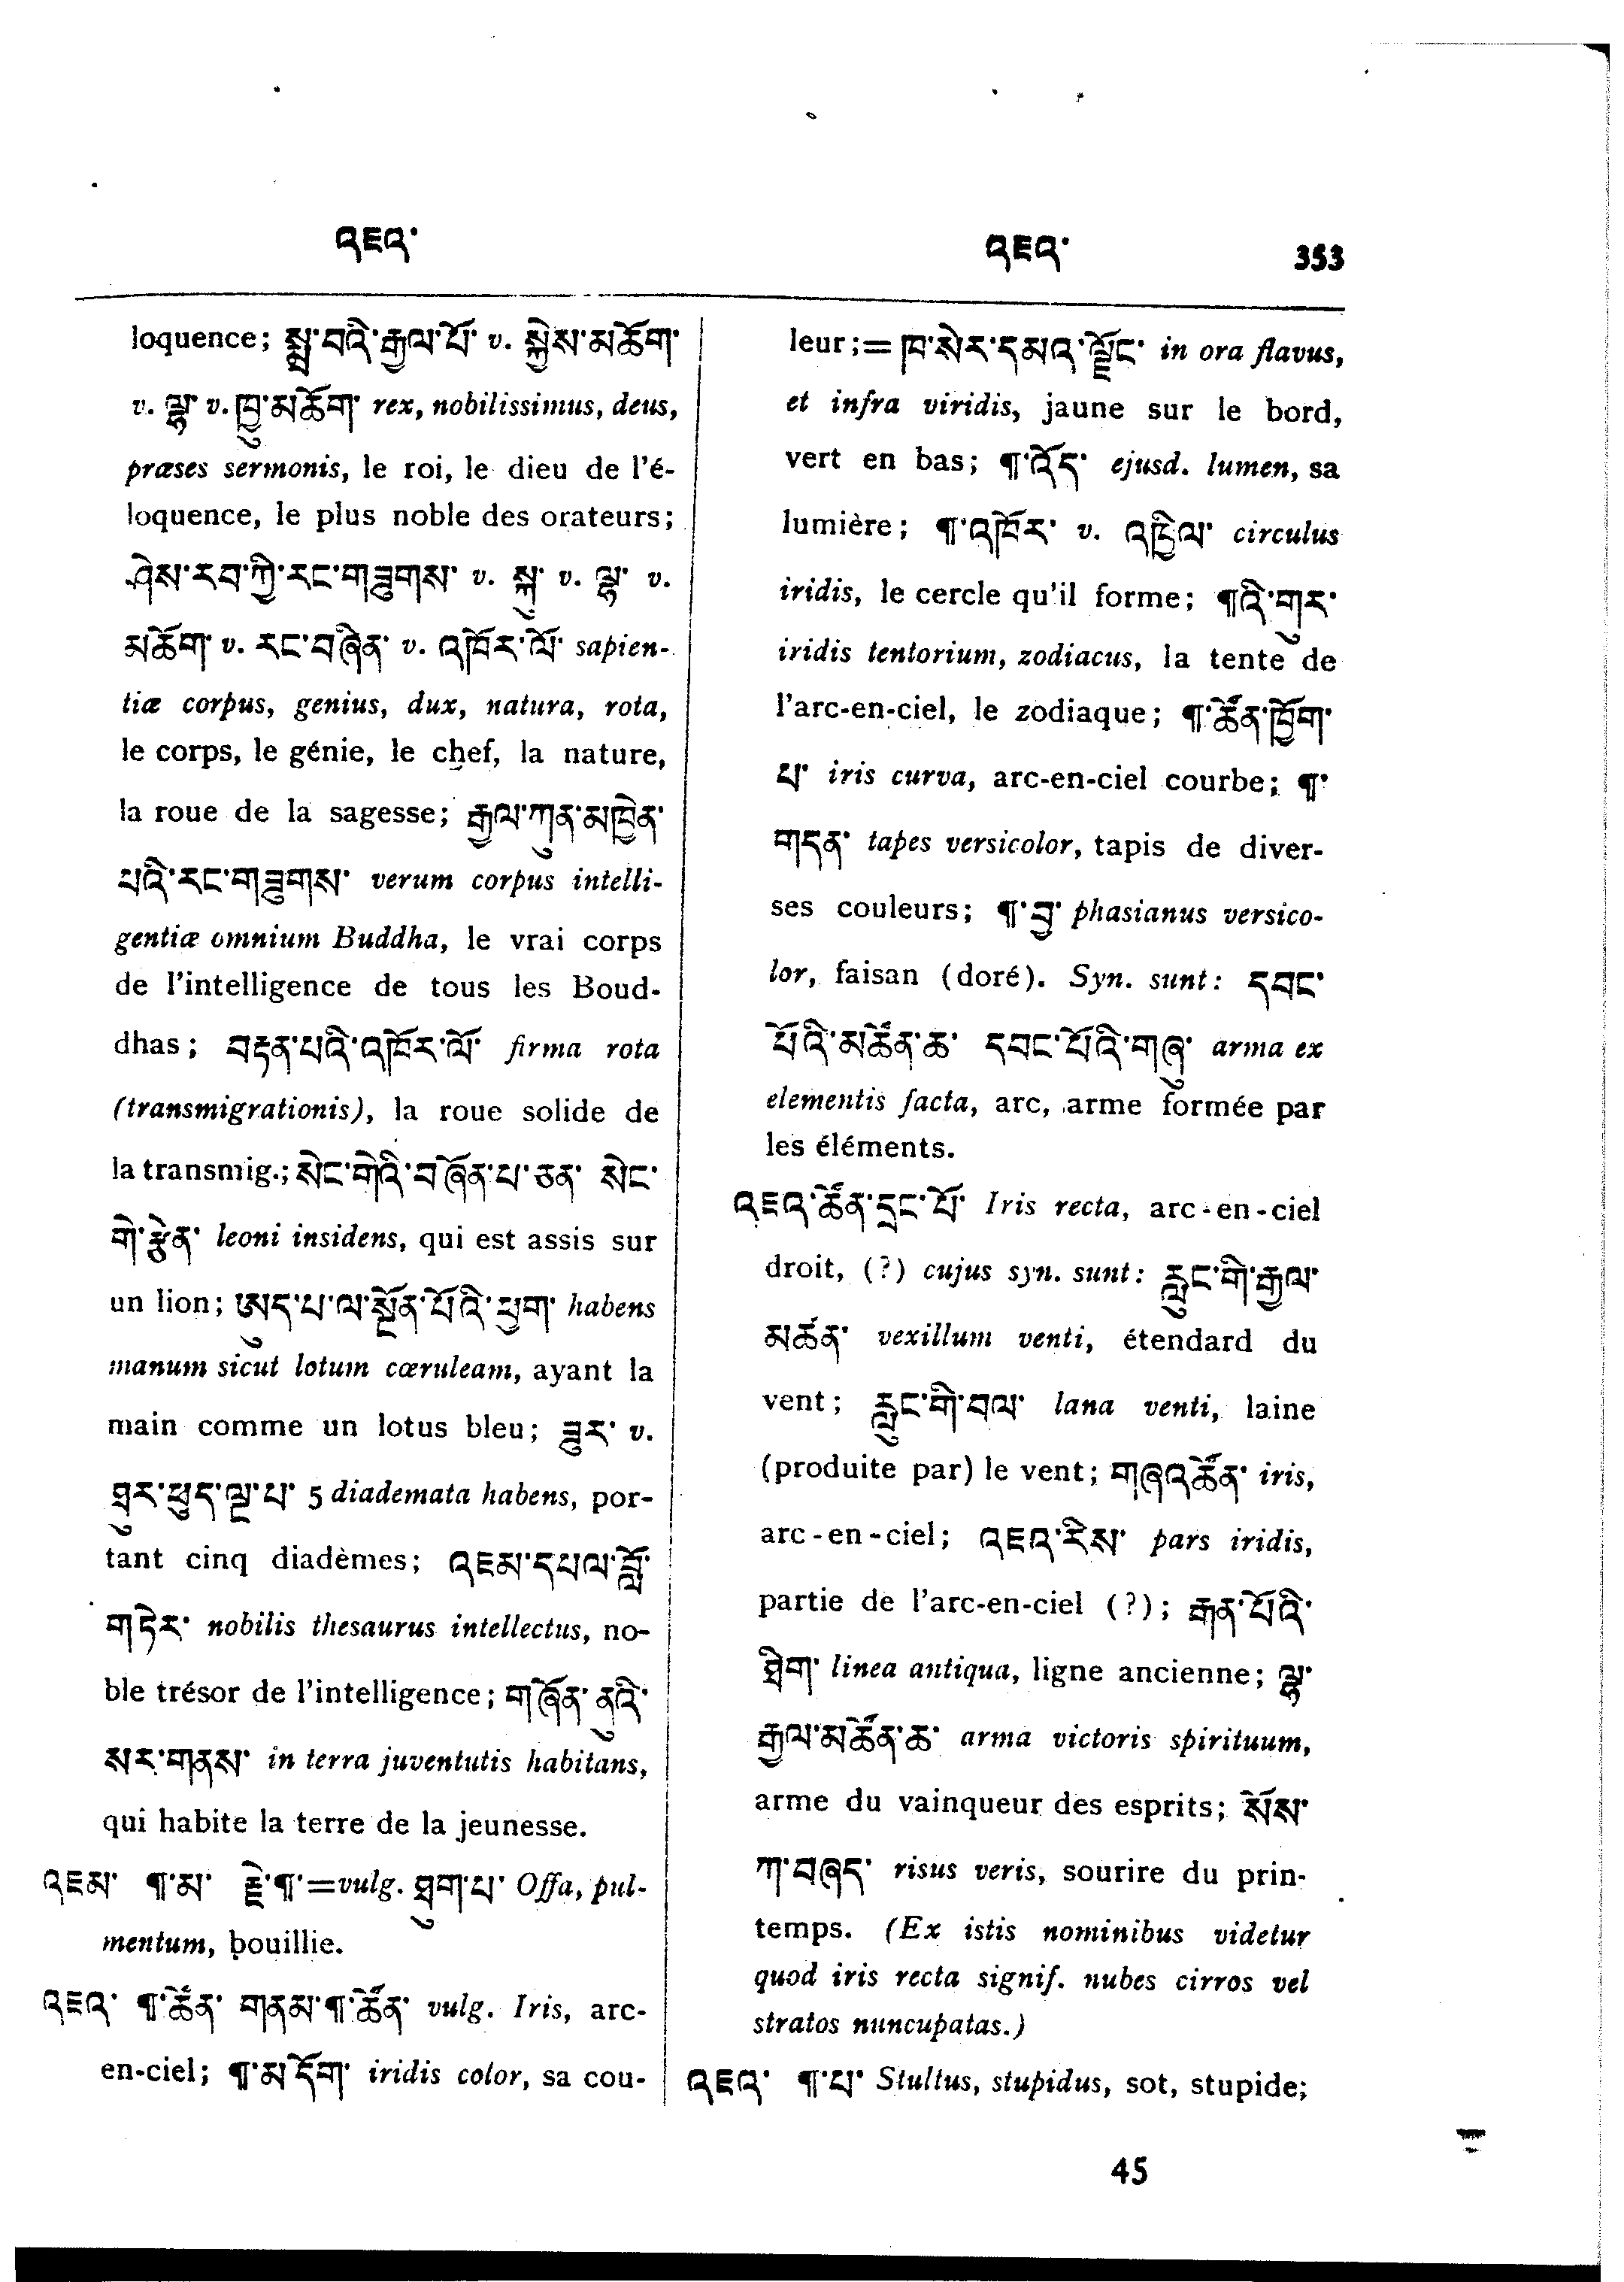 འཇའ་
འཇའ་ 353
loquence; སྨྲ་བའི་རྒྱལ་པོ་ v. སྐྱེས་མཆོག་
v. ལྷ་ v. ཁྱུ་མཆོག་ rex, nobilissimus, deus,
præses sermonis, le roi, le dieu de l'é-
loquence, le plus noble des orateurs;
ཤེས་རབ་ཀྱི་རང་གཟུགས་ v. སྐུ་ v. ལྷ་ v.
མཆོག་ v. རང་བཞིན་ v. འཁོར་ལོ་ sapien-
tiæ corpus, genius, dux, natura, rota,
le corps, le génie, le chef, la nature,
la roue de la sagesse; རྒྱལ་ཀུན་མཁྱེན་
པའི་རང་གཟུགས་ verum corpus intelli-
gentiæ omnium Buddha, le vrai corps
de l'intelligence de tous les Boud-
dhas; བརྟན་པའི་འཁོར་ལོ་ firma rota
(transmigrationis), la roue solide de
la transmig.; སེང་གེའི་བཞོན་པ་ཅན་ སེང་
གེ་རྩེན་ leoni insidens, qui est assis sur
un lion; ཨུད་པ་ལ་སྔོན་པོའི་ཕྱག་ habens
manum sicut lotum cœruleam, ayant la
main comme un lotus bleu; ཟུར་ v.
ཐུར་ཕུད་ལྔ་པ་ 5 diademata habens, por-
tant cinq diadèmes; འཇམ་དཔལ་བློ་
གཏེར་ nobilis thesaurus intellectus, no-
ble trésor de l'intelligence; གཞོན་ནུའི་
སར་གནས་ in terra juventutis habitans,
qui habite la terre de la jeunesse.
འཇམ་ ¶་མ་ རྗེ་¶་=vulg. ཐུག་པ་ Offa, pul-
mentum, bouillie.
འཇའ་ ¶་ཚོན་ གནམ་¶་ཚོན་ vulg. Iris, arc-
en-ciel; ¶་མདོག་ iridis color, sa cou-
leur;= ཁ་སེར་དམའ་ལྗོང་ in ora flavus,
et infra viridis, jaune sur le bord,
vert en bas; ¶་འོད་ ejusd. lumen, sa
lumière; ¶་འཁོར་ v. འཁྱིལ་ circulus
iridis, le cercle qu'il forme; ¶འི་གུར་
iridis tentorium, zodiacus, la tente de
l'arc-en-ciel, le zodiaque; ¶་ཚོན་ཁྱོག་
པ་ iris curva, arc-en-ciel courbe; ¶་
གདན་ tapes versicolor, tapis de diver-
ses couleurs; ¶་བྱ་ phasianus versico-
lor, faisan (doré). Syn. sunt: དབང་
པོའི་མཚོན་ཆ་ དབང་པོའི་གཞུ་ arma ex
elementis facta, arc, arme formée par
les éléments.
འཇའ་ཚོན་དྲང་པོ་ Iris recta, arc-en-ciel
droit, (?) cujus syn. sunt: རླུང་གི་རྒྱལ་
མཚན་ vexillum venti, étendard du
vent; རླུང་གི་བལ་ lana venti, laine
(produite par) le vent; གཞའཚོན་ iris,
arc-en-ciel; འཇའ་རིས་ pars iridis,
partie de l'arc-en-ciel (?); རྒན་པོའི་
ཐིག་ linea antiqua, ligne ancienne; ལྷ་
རྒྱལ་མཚོན་ཆ་ arma victoris spirituum,
arme du vainqueur des esprits; སོས་
ཀ་བཞད་ risus veris, sourire du prin-
temps. (Ex istis nominibus videtur
quod iris recta signif. nubes cirros vel
stratos nuncupatas.)
འཇའ་ ¶་པ་ Stultus, stupidus, sot, stupide;
45